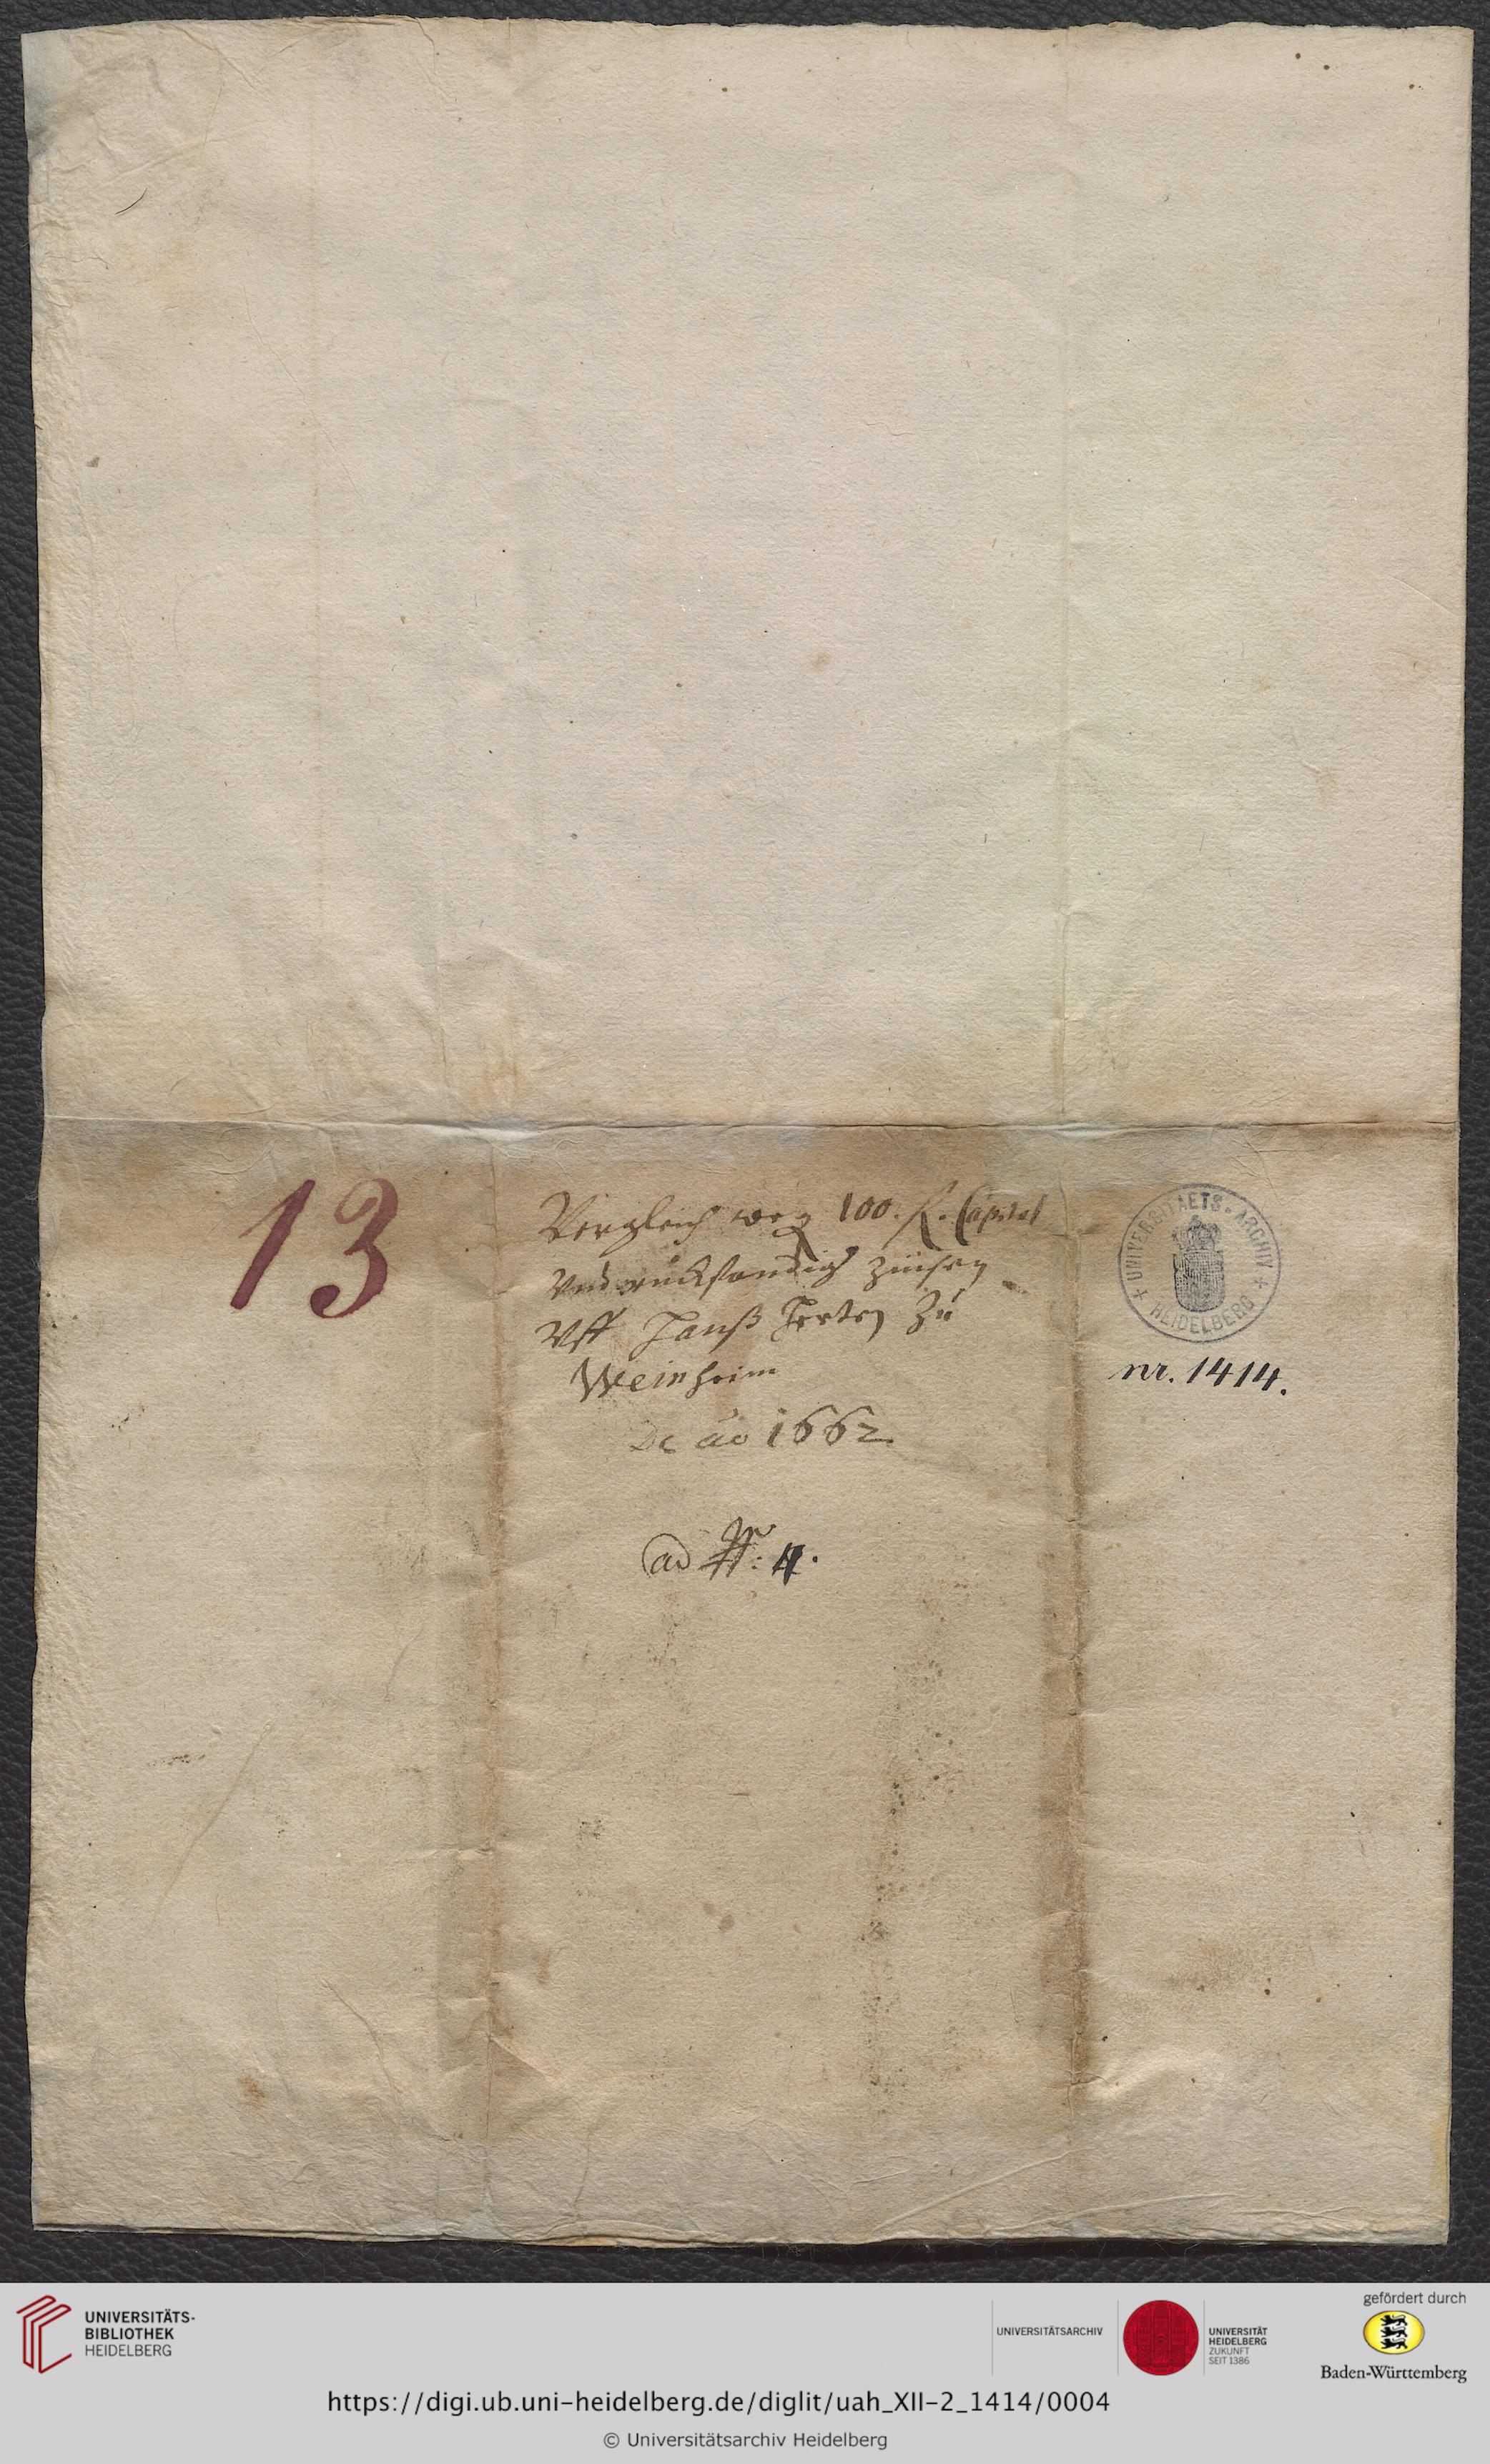 13
Vergleich weg 100. fl. Capital
Vnd ruckstandig Zinsen
Vff Hanß Herten Zu
Weinheim
De ao 1662
ad 4.
+ UNIVERSITAETS-ARCHIV + HEIDELBERG
nr. 1414.
UNIVERSITÄTS-
BIBLIOTHEK
HEIDELBERG
UNIVERSITÄTSARCHIV
UNIVERSITÄT
HEIDELBERG
ZUKUNFT
SEIT 1386
gefördert durch
Baden-Württemberg
https://digi.ub.uni-heidelberg.de/diglit/uah_XII-2_1414/0004
© Universitätsarchiv Heidelberg